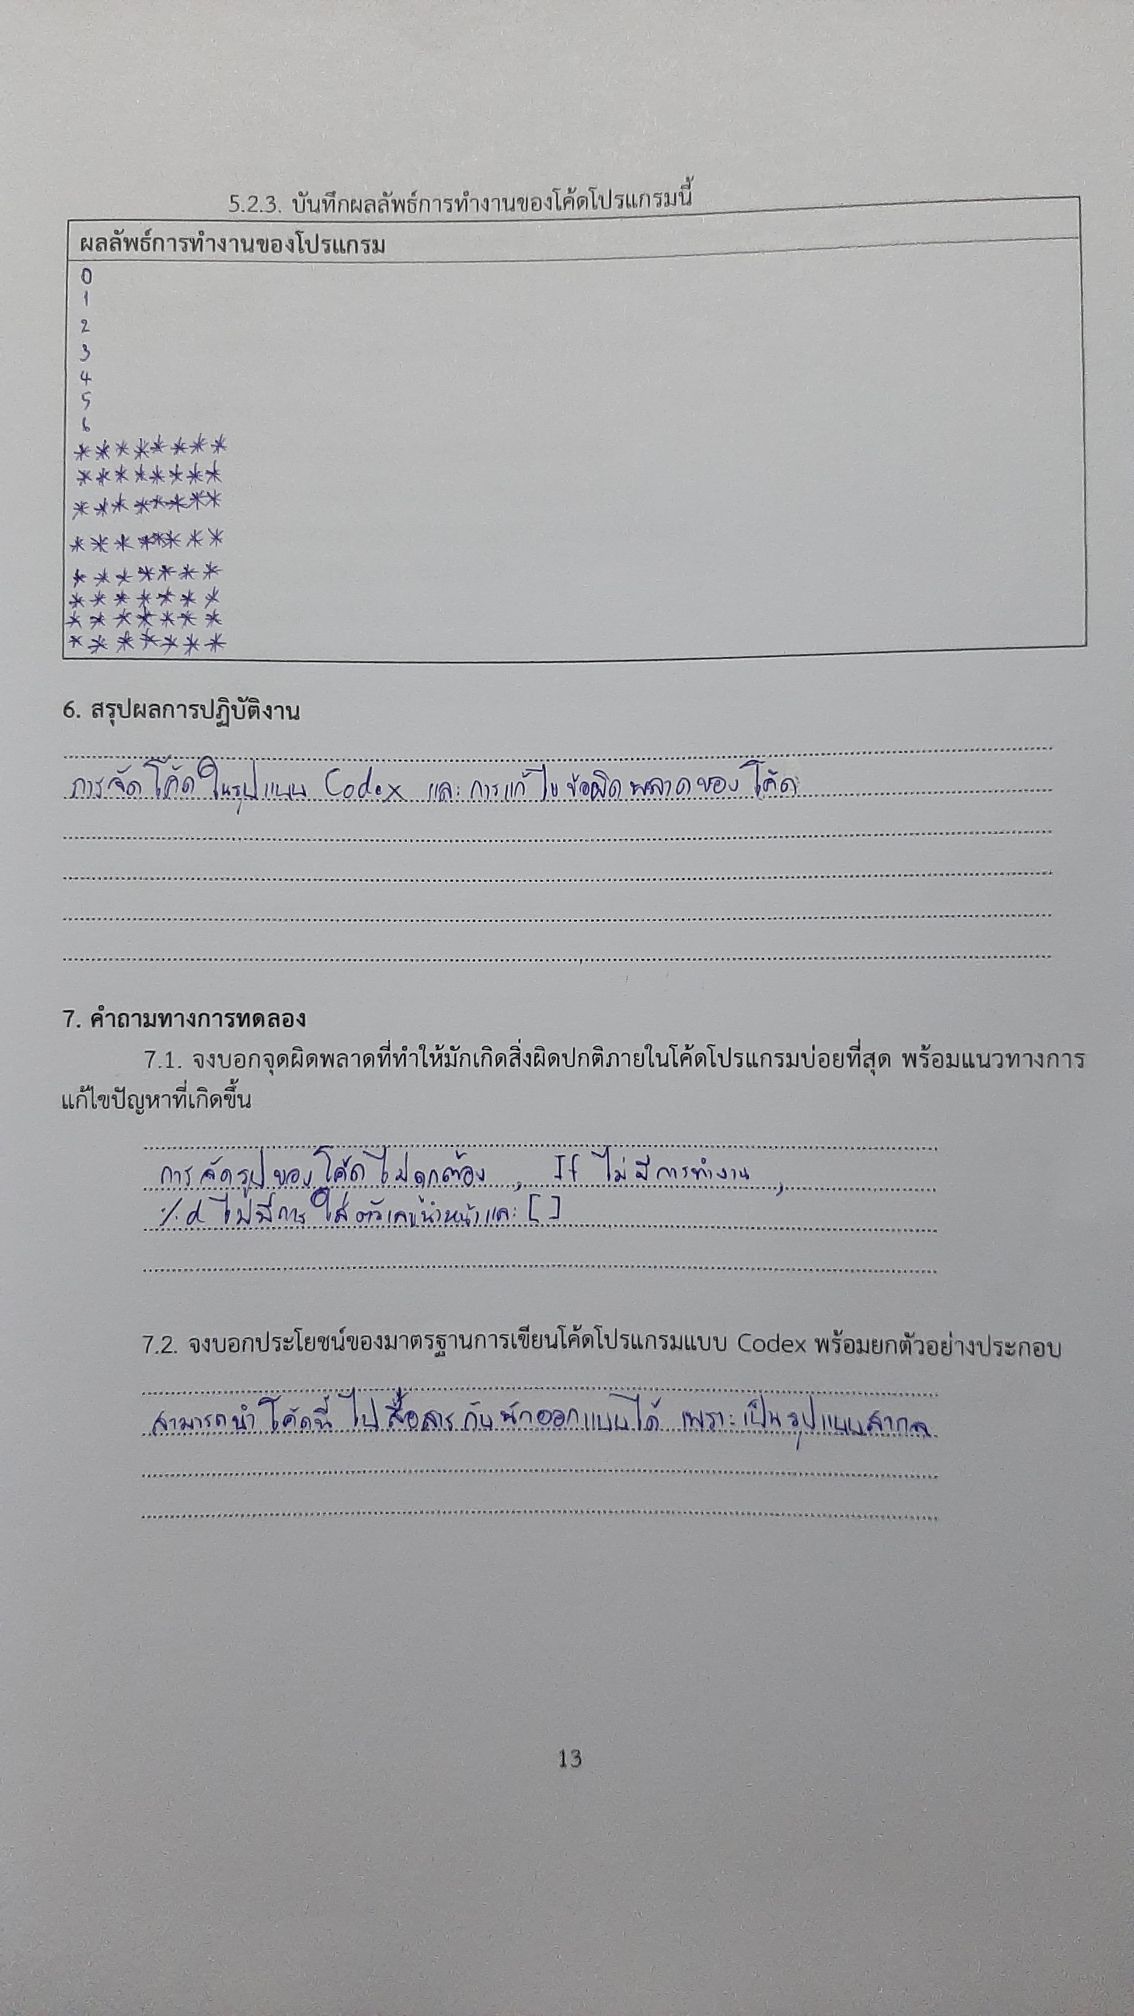 5.2.3. บันทึกผลลัพธ์การทำงานของโค้ดโปรแกรมนี้
ผลลัพธ์การทำงานของโปรแกรม
0
1
2
3
4
5
6
********
********
********
********
*******
*******
*******
*******
6. สรุปผลการปฏิบัติงาน
การจัดโค้ดในรูปแบบ Codex และการแก้ไขข้อผิดพลาดของโค้ด
7. คำถามทางการทดลอง
7.1. จงบอกจุดผิดพลาดที่ทำให้มักเกิดสิ่งผิดปกติภายในโค้ดโปรแกรมบ่อยที่สุด พร้อมแนวทางการ
แก้ไขปัญหาที่เกิดขึ้น
การจัดรูปของโค้ดไม่ถูกต้อง , If ไม่มีการทำงาน ,
%d ไม่มีการใส่ตัวเลขนำหน้าและ [ ]
7.2. จงบอกประโยชน์ของมาตรฐานการเขียนโค้ดโปรแกรมแบบ Codex พร้อมยกตัวอย่างประกอบ
สามารถนำโค้ดนี้ไปสื่อสารกับนักออกแบบได้ เพราะเป็นรูปแบบสากล
13